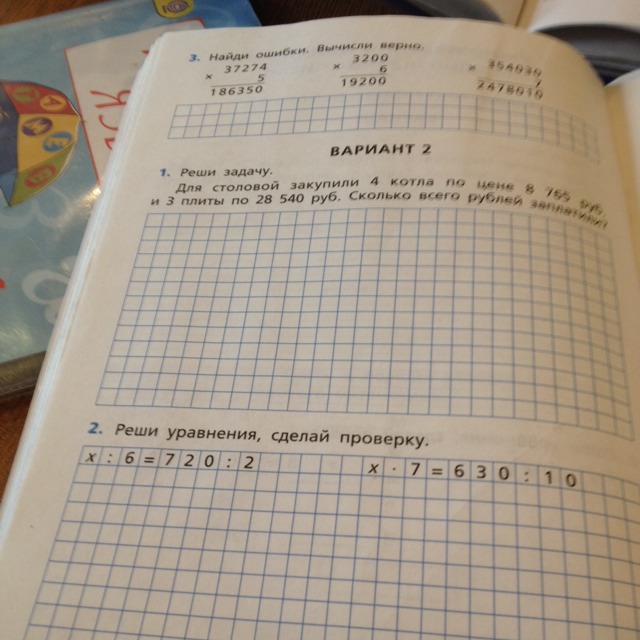 3. Найди ошибки. Вычисли верно.
× 37274 × 3200 × 354030
5 6 7
186350 19200 2478010
ВАРИАНТ 2
1. Реши задачу.
Для столовой закупили 4 котла по цене 8 765 руб.
и 3 плиты по 28 540 руб. Сколько всего рублей заплатили?
2. Реши уравнения, сделай проверку.
x : 6 = 7 2 0 : 2 x · 7 = 6 3 0 : 1 0